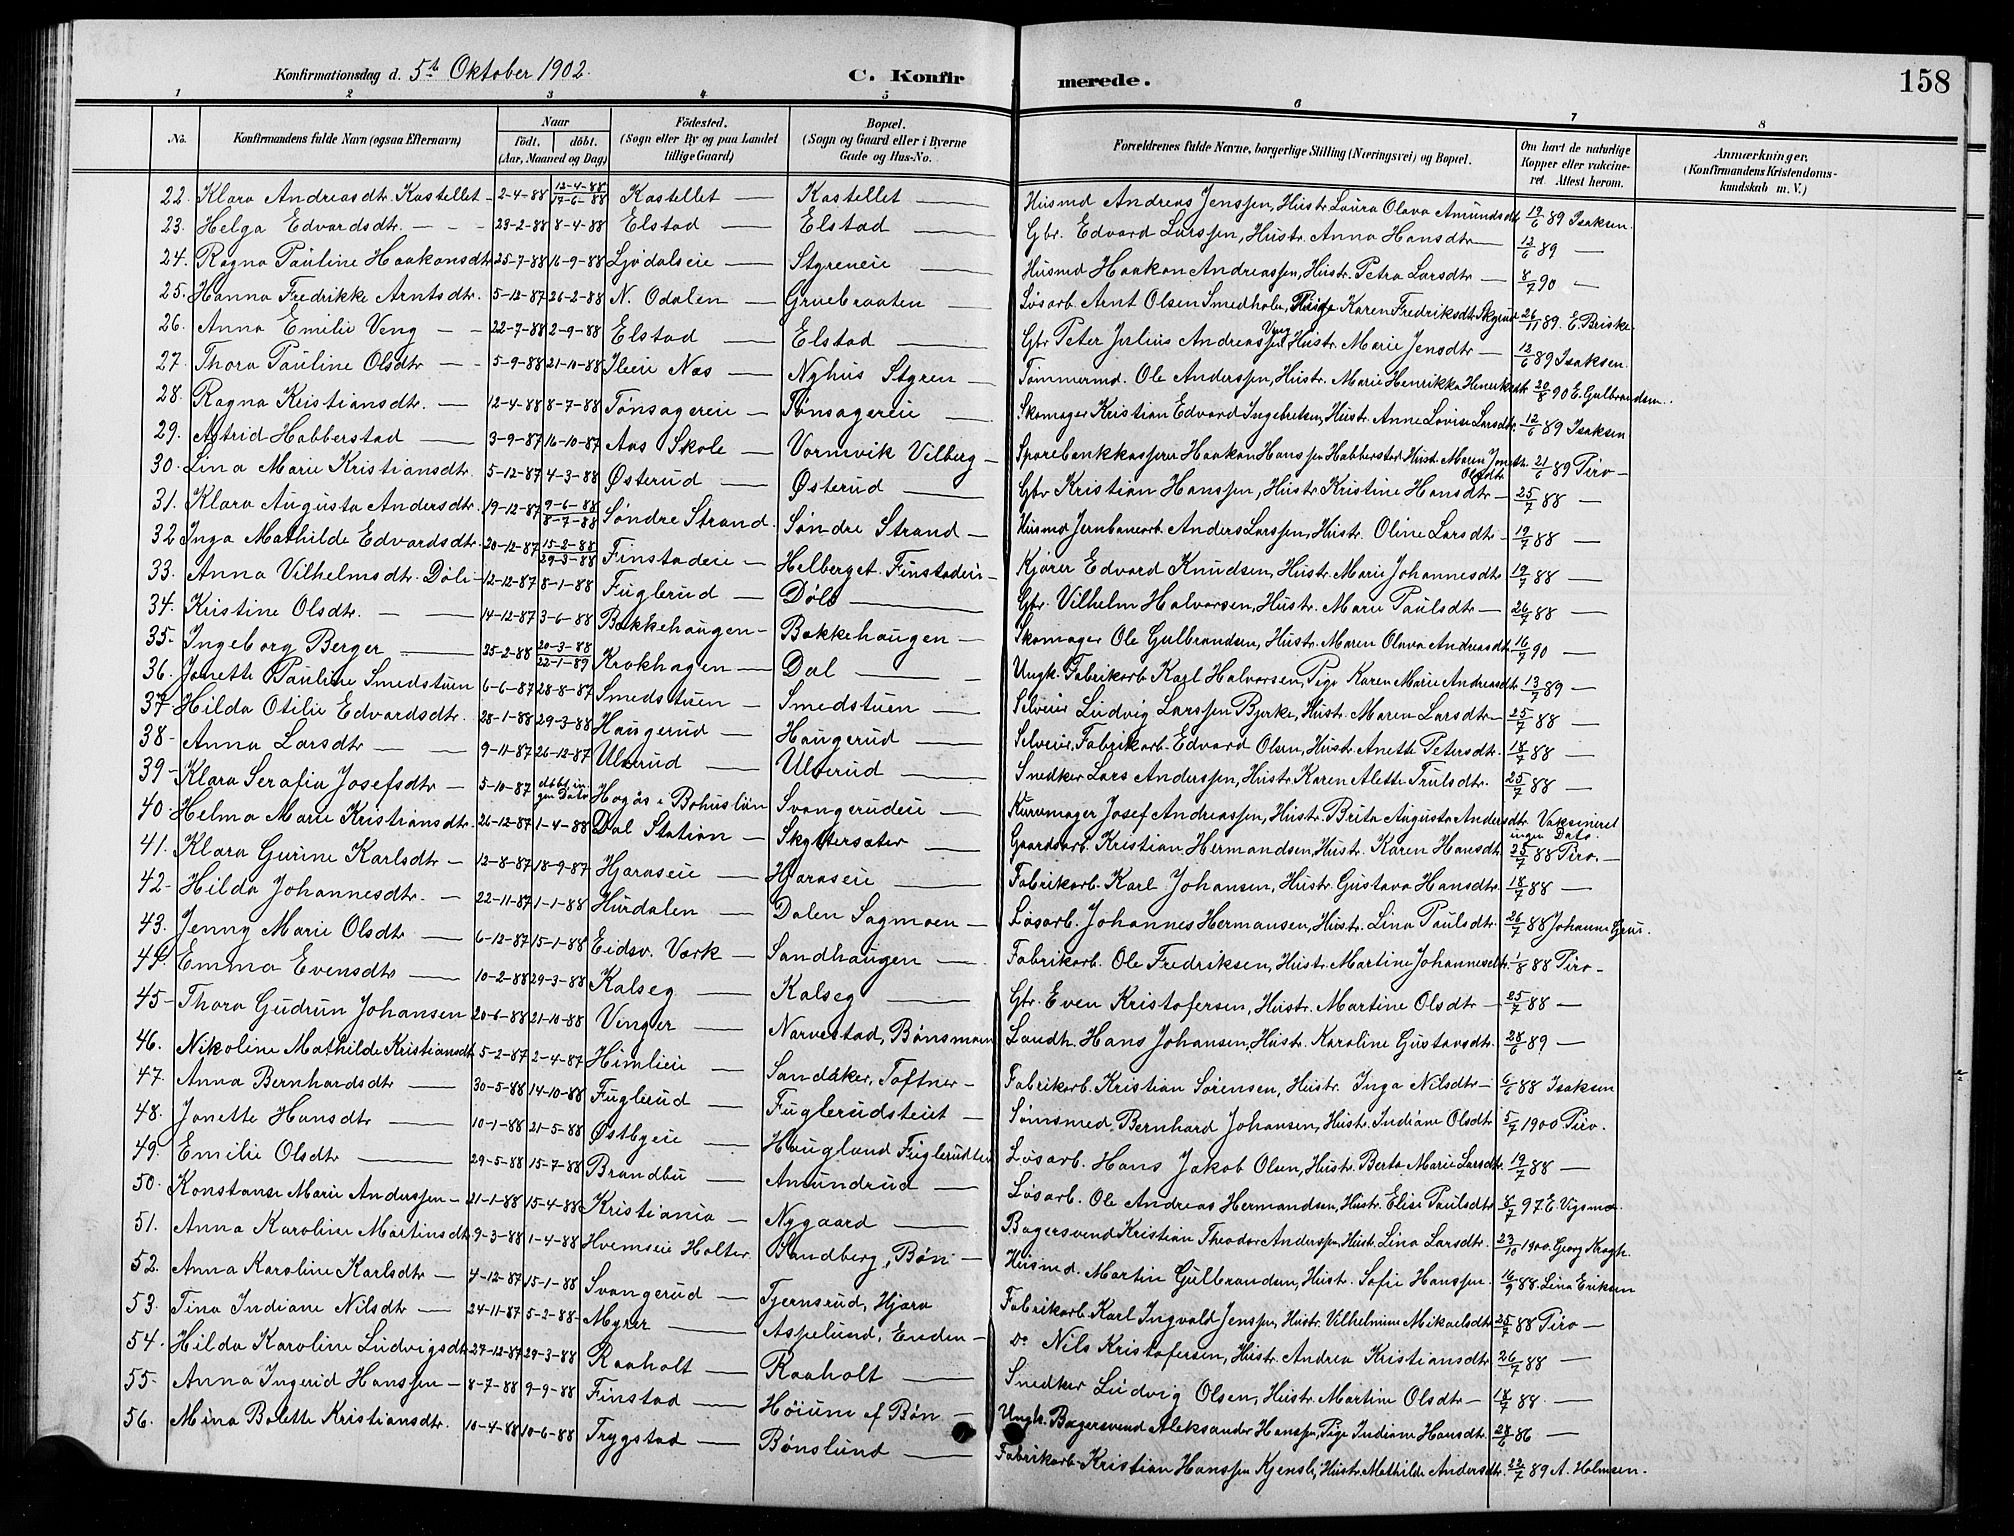 Konfirmationsdag d. 5te Oktober 1902.
C. Konfirmerede.
158
1 2 3 4 5 6 7 8
No. Konfirmandens fulde Navn (ogsaa Efternavn) Naar født. døbt. (Aar, Maaned og Dag) Fødested. (Sogn eller By og paa Landet tillige Gaard) Bopæl. (Sogn og Gaard eller i Byerne Gade og Hus-No. Forældrenes fulde Navne, borgerlige Stilling (Næringsvei) og Bopæl. Om havt de naturlige Kopper eller vakcineret. Attest herom. Anmærkninger. (Konfirmandens Kristendomskundskab m. V.)
22. Klara Andreasdtr. Kastellet 2-4-88 12-4-88 17-6-88 Kastellet Kastellet Husmd Andreas Jenssen, Hustr. Laura Olava Amundsdtr 19/6 89 Isaksen
23. Helga Edvardsdtr. 23-2-88 8-4-88 Elstad Elstad Gbr. Edvard Larssen, Hustr. Anna Hansdtr 12/6 89 —
24. Ragna Pauline Haakonsdtr 25-7-88 16-9-88 Ljødalseie Styreneie Husmd Haakon Andreassen, Hustr. Petra Larsdtr 8/7 90 —
25. Hanna Fredrikke Arntsdtr. 5-12-87 26-2-88 N. Odalen Gruebraaten Løsarb. Arnt Olsen Smedholen, Pige Karen Fredriksdtr. 26/11 89. E. Briske
26. Anna Emilie Veng 22-7-88 2-9-88 Elstad Elstad Gbr Peter Julius Andreassen Veng, Hustr. Marie Jensdtr 12/6 89 Isaksen
27. Thora Pauline Olsdtr 5-9-88 21-10-88 Ileie Nes Nyhus Styren Tømmermd. Ole Anderssen, Hustr. Marie Henrikka Henriksdtr 20/8 90 E. Gulbrandsen.
28. Ragna Kristiansdtr. 12-4-88 8-7-88 Tønsagereie Tønsagereie Skomager Kristian Edvard Ingebretsen, Hustr. Anne Lovise Larsdtr. 12/6 89 Isaksen
29. Astrid Habberstad 3-9-87 16-10-87 Aas Skole Vormvik Vilberg Sparebankkasserer Haakon Hanssen Habberstad, Hustr. Maren Jonette Olsdtr. 21/6 89 Piro
30. Lina Marie Kristiansdtr. 5-12-87 4-3-88 Østerud Østerud Gbr Kristian Hanssen, Hustr Kristine Hansdtr 25/7 88 —
31. Klara Augusta Andersdtr. 19-12-87 9-6-88 8-7-88 Søndre Strand Søndre Strand Husmd Jernbanearb. Anders Larssen, Hustr. Oline Larsdtr 19/7 88 —
32 Inga Mathilde Edvardsdtr. 20-12-87 15-2-88 29-3-88 Finstadeie Helberget Finstadeie Kjører Edvard Knudsen, Hustr. Marie Johannesdtr 19/7 88 —
33. Anna Vilhelmsdtr. Døli 12-12-87 8-1-88 Fuglerud Døli Gbr. Vilhelm Halvorsen, Hustr. Marie Paulsdtr 26/7 88 —
34. Kristine Olsdtr. 14-12-87 3-6-88 Bakkehaugen Bakkehaugen Skomager Ole Gulbrandsen, Hustr. Maren Olava Andreasdtr 16/7 90 —
35. Ingeborg Berger 25-2-88 20-3-88 22-1-89 Krokhagen Dal Ungk. Fabrikarb. Karl Halvorsen, Pige Karen Marie Andreasdtr 13/7 89 —
36. Jonette Pauline Smedstuen 6-6-87 28-8-87 Smedstuen Smedstuen Selveier Ludvig Larssen Bjerke, Hustr. Maren Larsdtr 25/7 88 —
37 Hilda Otilie Edvardsdtr. 28-1-88 29-3-88 Haugerud Haugerud Selveier, Fabrikarb. Edvard Olsen, Hustr. Anette Petersdtr. 18/7 88 —
38 Anna Larsdtr 9-11-87 26-12-87 Ulverud Ulverud Snedker Lars Anderssen, Hustr. Karen Alette Trulsdtr. 25/7 88 —
39 Klara Serafia Josefsdtr 5-10-87 døbt ingen Dato Hogås i Bohuslän Svangerudeie Kurvmager Josef Andreassen, Hustr. Brita Augusta Andersdtr. Vaksineret ingen Dato.
40. Helma Marie Kristiansdtr. 26-12-87 1-4-88 Dal Station Skyttersæter Gaardarb. Kristian Hermandsen, Hustr. Karen Hansdtr 25/7 88 Piro.
41. Klara Gurine Karlsdtr 12-8-87 18-9-87 Hjæraseie Hjæraseie Fabrikarb. Karl Johansen, Hustr. Gustava Hansdtr. 18/7 88 —
42. Hilda Johannesdtr. 22-11-87 1-1-88 Hurdalen Dalen Sagmoen Løsarb. Johannes Hermansen, Hustr. Lina Paulsdtr. 26/7 88 Johanne Grue.
43. Jenny Marie Olsdtr 6-12-87 15-1-88 Eidsv. Værk Sandhaugen Fabrikarb. Ole Fredriksen, Hustr. Martine Johannesdtr. 1/8 88 Piro
44. Emma Evensdtr 10-2-88 29-3-88 Kalseg Kalseg Gbr. Even Kristofersen, Hustr. Martine Olsdtr 25/7 88 —
45 Thora Gudrun Johansen 20-6-88 21-10-88 Vinger Narvestad, Bønsmoen Landh. Hans Johansen, Hustr. Karoline Gustavsdtr. 28/6 89 —
46. Nikoline Mathilde Kristiansdtr 5-2-87 2-4-87 Himlieie Sandaker, Tøftner Fabrikarb. Kristian Sørensen, Hustr. Inga Nilsdtr 6/6 88 Isaksen
47. Anna Bernhardsdtr 30-5-88 14-10-88 Fuglerud Fuglerudsteiet Sømsmed. Bernhard Johansen, Hustr. Indiane Olsdtr 5/7 1900 Piro.
48. Jonette Hansdtr 10-1-88 21-5-88 Østbyeie Haugland Fuglerudtei Løsarb. Hans Jakob Olsen, Hustr. Berta Marie Larsdtr. 19/7 88 —
49. Emilie Olsdtr 29-5-88 15-7-88 Brandbu Amundrud Løsarb. Ole Andreas Hermandsen, Hustr. Elise Paulsdtr 8/7 97 E. Vigsmo.
50. Konstanse Marie Anderssen 21-1-88 15-4-88 Kristiania Nygaard Bagersvend Kristian Theodor Anderssen, Hustr. Lina Larsdtr. 23/10 1900. Georg Krogh.
51. Anna Karoline Martinsdtr 9-3-88 1-4-88 Hvemseie Holter Sandberg, Bøn Husmd. Martin Gulbrandsen, Hustr. Sofie Hanssen. 16/9 88. Lina Eriksen
52. Anna Karoline Karlsdtr 4-12-87 15-1-88 Svangerud Tjernsrud, Hjæra Fabrikarb Karl Ingvald Jenssen, Hustr. Vilhelmine Mikaelsdtr 25/7 88 Piro
53. Tina Indiane Nilsdtr 24-11-87 5-2-88 Myrer Aspelund, Enden Do Nils Kristofersen, Hustr. Andrea Kristiansdtr 26/7 88 —
54. Hilda Karoline Ludvigsdtr 27-12-87 29-3-88 Raaholt Raaholt Snedker Ludvig Olsen, Hustr. Martine Olsdtr 18/7 88. —
55. Anna Ingerid Hanssen 8-7-88 9-9-88 Finstad Høium af Bøn Ungk. Bagersvend Aleksander Hanssen, Pige Indiane Hansdtr. 28/6 86 —
56. Mina Bolette Kristiansdtr. 10-4-88 10-6-88 Trygstad Bønslund Fabrikarb. Kristian Hanssen Kjensli, Hustr. Mathilde Andersdtr. 22/7 89 A. Holmsen.